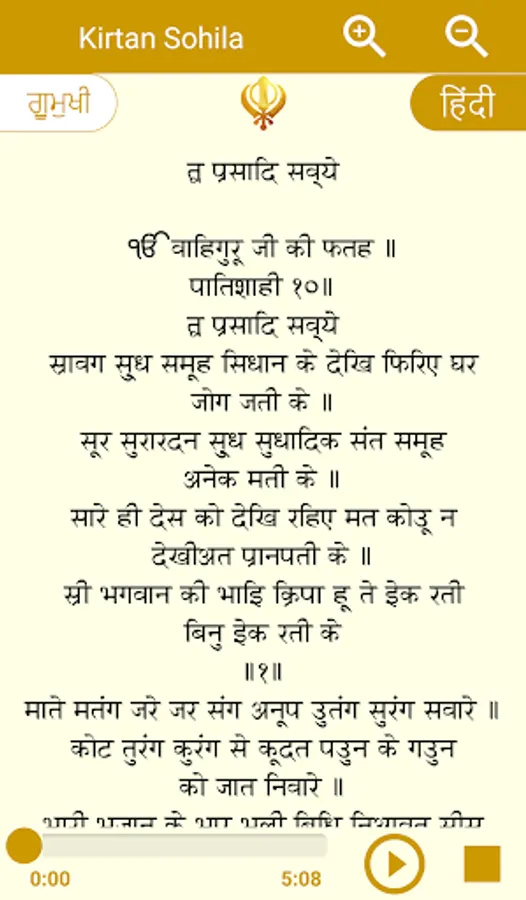 Kirtan Sohila
ਗੁਰਮੁਖੀ
हिंदी
त्व प्रसादि सव्ये
ੴ वाहिगुरू जी की फतह ॥
पातिशाही १०॥
त्व प्रसादि सव्ये
स्रावग सु्ध समूह सिधान के देखि फिरिए घर
जोग जती के ॥
सूर सुरारदन सु्ध सुधादिक संत समूह
अनेक मती के ॥
सारे ही देस को देखि रहिए मत कोउू न
देखीअत प्रानपती के ॥
स्री भगवान की भाइि क्रिपा हू ते इेक रती
बिनु इेक रती के
॥१॥
माते मतंग जरे जर संग अनूप उुतंग सुरंग सवारे ॥
कोट तुरंग कुरंग से कूदत पउुन के गउुन
को जात निवारे ॥
0:00
5:08